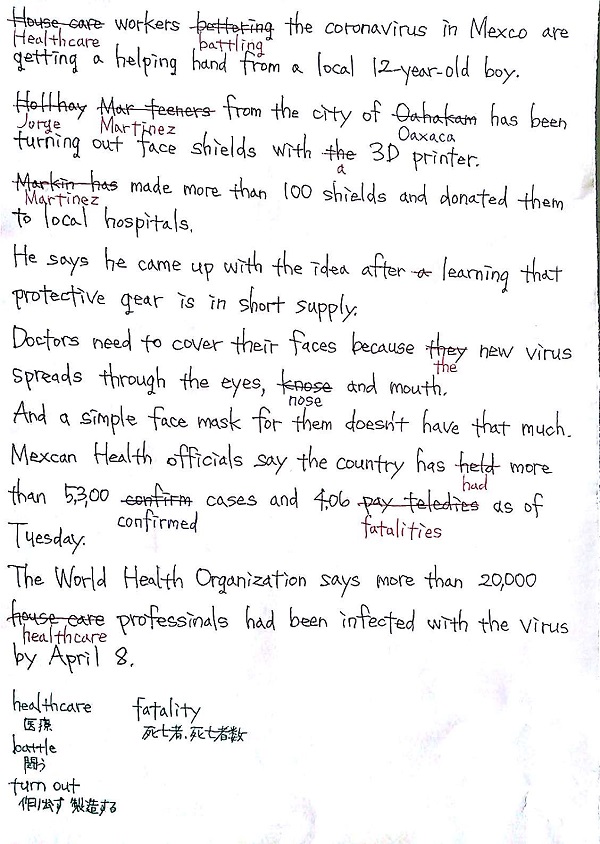 House care workers bettering the coronavirus in Mexco are
Healthcare battling
getting a helping hand from a local 12-year-old boy.
Hollhay Mar teeners from the city of Oahakam has been
Jorge Martinez Oaxaca
turning out face shields with the 3D printer.
a
Markin has made more than 100 shields and donated them
Martinez
to local hospitals.
He says he came up with the idea after a learning that
protective gear is in short supply.
Doctors need to cover their faces because they new virus
the
spreads through the eyes, knose and mouth.
nose
And a simple face mask for them doesn't have that much.
Mexcan Health officials say the country has held more
had
than 5,3,00 confirm cases and 4,06 pay teledies as of
confirmed fatalities
Tuesday.
The World Health Organization says more than 20,000
house care professinals had been infected with the virus
healthcare
by April 8.
healthcare fatality
医療 死亡者、死亡者数
battle
闘う
turn out
作り出す 製造する